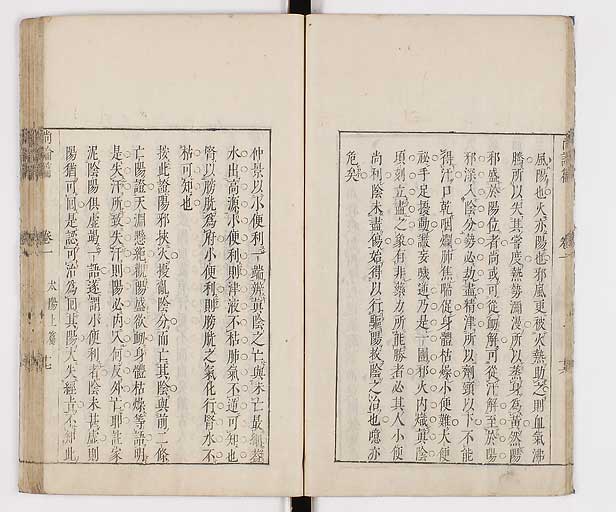 風陽也火亦陽也邪風更被火熱助之則血氣沸
騰所以失其常度熱勢瀰漫所以蒸身爲黃然陽
邪盛於陽位者尚或可從衂解可從汗解至於陽
邪深入陰分勢必劫盡精津所以劑頸以下不能
得汗口乾咽爛肺焦喘促身體枯燥小便難大便
祕手足擾動讝妄噦逆乃是一團邪火內熾真陰
頃刻立盡之象有非藥力所能勝者必其人小便
尚利陰未盡傷始得以行驅陽救陰之治也噫亦
危矣
仲景以小便利一端辨真陰之亡與未亡最細葢
水出高源小便利則津液不枯肺氣不逆可知也
腎以膀胱爲府小便利則膀胱之氣化行腎水不
枯可知也
按此證陽邪挾火擾亂陰分而亡其陰與前二條
亡陽證天淵懸絕觀陽盛欲衂身體枯燥等語明
是失汗所致失汗則陽必內入何反外亡耶註家
泥陰陽俱虛竭一語遂謂小便利者陰未甚虛則
陽猶可回是認可治爲回其陽大失經旨不知此
尚論篇
卷一
太陽上篇
七